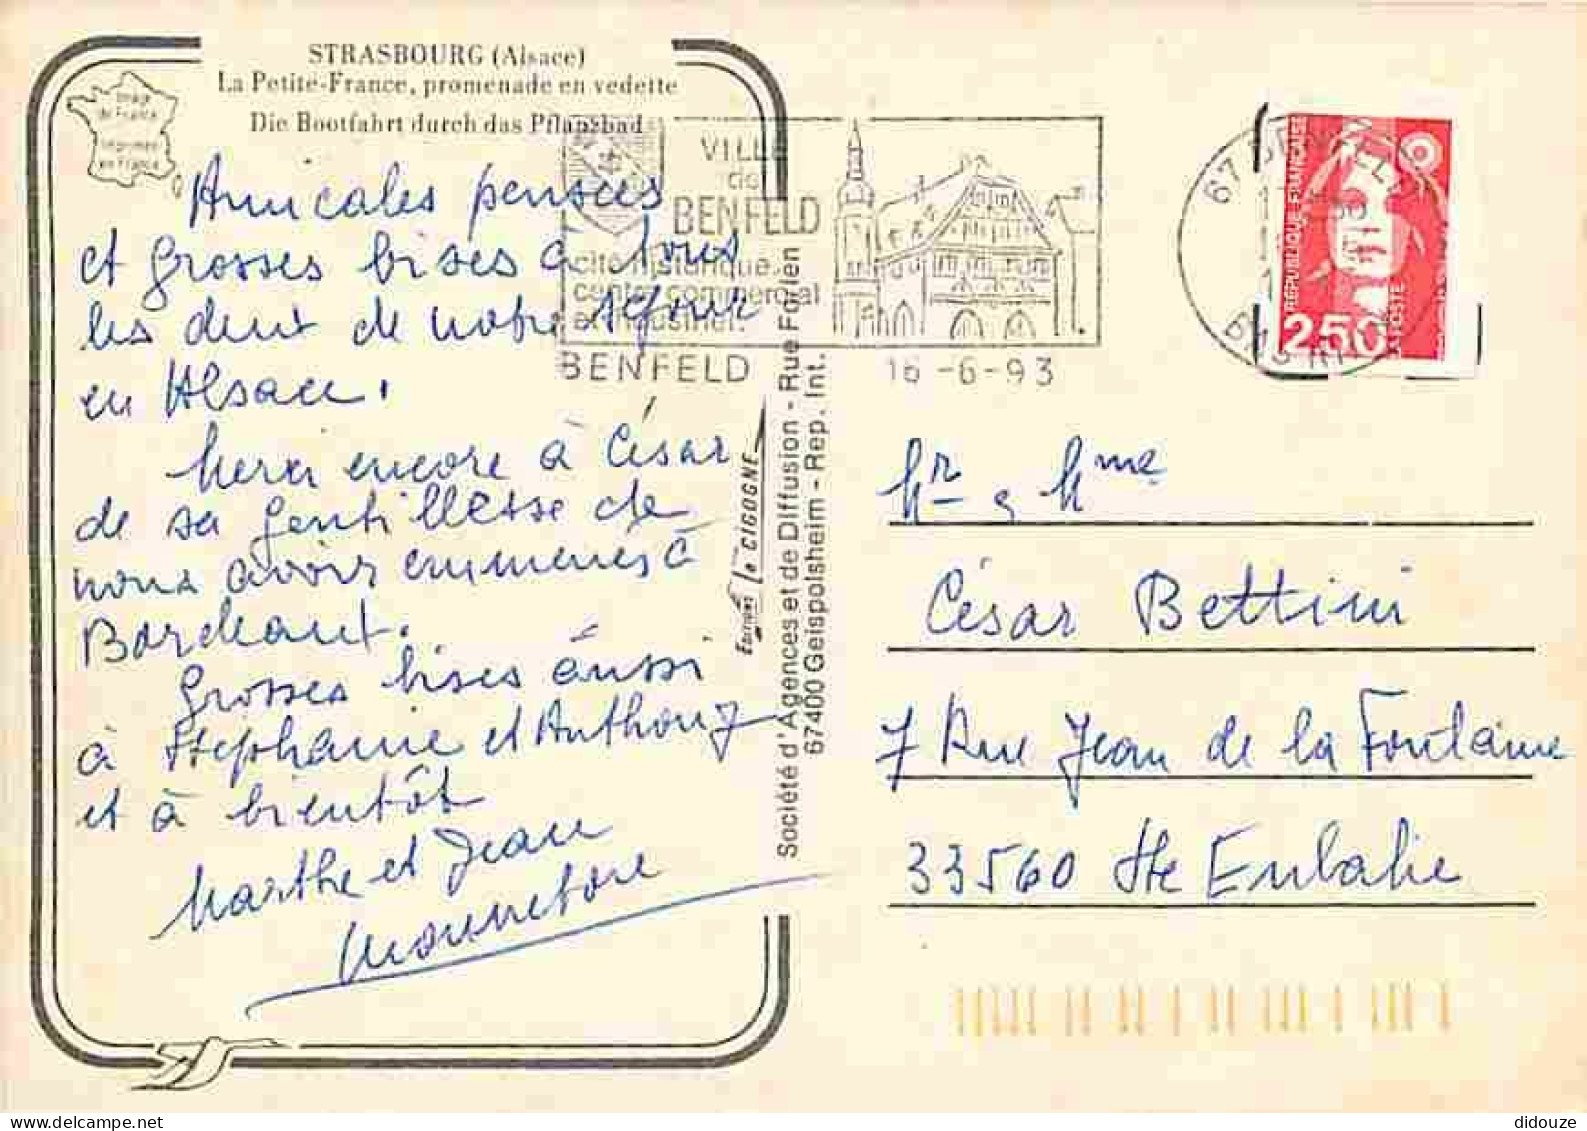 STRASBOURG (Alsace)
La Petite-France, promenade en vedette
Die Bootfahrt durch das Pflanzbad
Image
de France
Imprimée
en France
Amicales pensées
et grosses bises à tous
les deux de notre séjour
en Alsace.
Merci encore à César
de sa gentillesse de
nous avoir emmenés à
Bordeaux.
Grosses bises aussi
à Stéphanie et Anthony
et à bientôt
Marthe et Jean
VILLE
de
BENFELD
cité historique
centre commercial
et industriel.
BENFELD 16-6-93
67 BENFELD
BAS RHIN
RÉPUBLIQUE FRANÇAISE
2,50
LA POSTE
Editions la CIGOGNE
Société d'Agences et de Diffusion - Rue Forlen
67400 Geispolsheim - Rep. Int.
Mr & Mme
César Bettini
7 Rue Jean de la Fontaine
33560 Ste Eulalie
didouze